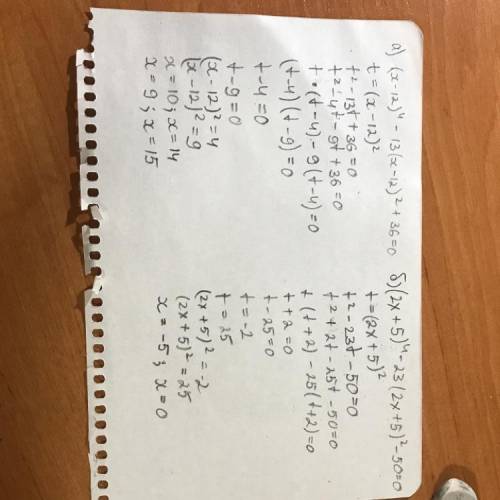 а) (x-12)⁴ - 13(x-12)² + 36 = 0
t = (x-12)²
t² - 13t + 36 = 0
t² - 4t - 9t + 36 = 0
t·(t-4) - 9(t-4) = 0
(t-4)(t-9) = 0
t-4 = 0
t-9 = 0
(x-12)² = 4
(x-12)² = 9
x = 10; x = 14
x = 9; x = 15
б) (2x+5)⁴ - 23(2x+5)² - 50 = 0
t = (2x+5)²
t² - 23t - 50 = 0
t² + 2t - 25t - 50 = 0
t(t+2) - 25(t+2) = 0
t+2 = 0
t-25 = 0
t = -2
t = 25
(2x+5)² = -2
(2x+5)² = 25
x = -5; x = 0